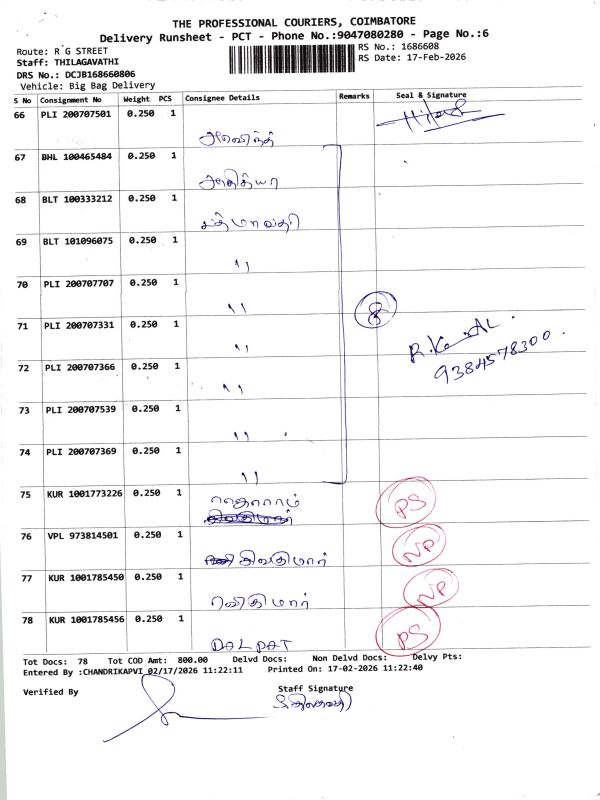 THE PROFESSIONAL COURIERS, COIMBATORE
Delivery Runsheet - PCT - Phone No.:9047080280 - Page No.:6
Route: R G STREET
Staff: THILAGAVATHI
DRS No.: DCJB168660806
Vehicle: Big Bag Delivery
RS No.: 1686608
RS Date: 17-Feb-2026
S No Consignment No Weight PCS Consignee Details Remarks Seal & Signature
66 PLI 200707501 0.250 1
67 BHL 100465484 0.250 1
68 BLT 100333212 0.250 1
பத்மாவதி
69 BLT 101096075 0.250 1
"
70 PLI 200707707 0.250 1
"
8
71 PLI 200707331 0.250 1
"
9384578300.
72 PLI 200707366 0.250 1
"
73 PLI 200707539 0.250 1
"
74 PLI 200707369 0.250 1
"
75 KUR 1001773226 0.250 1
PS
76 VPL 973814501 0.250 1
NP
77 KUR 1001785450 0.250 1
NP
78 KUR 1001785456 0.250 1
DALPAT PS
Tot Docs: 78 Tot COD Amt: 800.00 Delvd Docs: Non Delvd Docs: Delvy Pts:
Entered By :CHANDRIKAPVI 02/17/2026 11:22:11 Printed On: 17-02-2026 11:22:40
Verified By Staff Signature